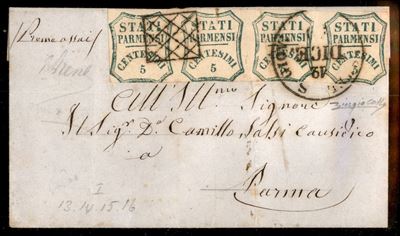 Preme assai
STATI PARMENSI CENTESIMI 5
STATI PARMENSI CENTESIMI 5
STATI PARMENSI CENTESIMI
STATI PARMENSI CENTESIMI
12
DIC
All'Ill.mo Signore
Il Sig.r D.r Camillo Salsi Causidico
a
Parma
I
13.14.15.16